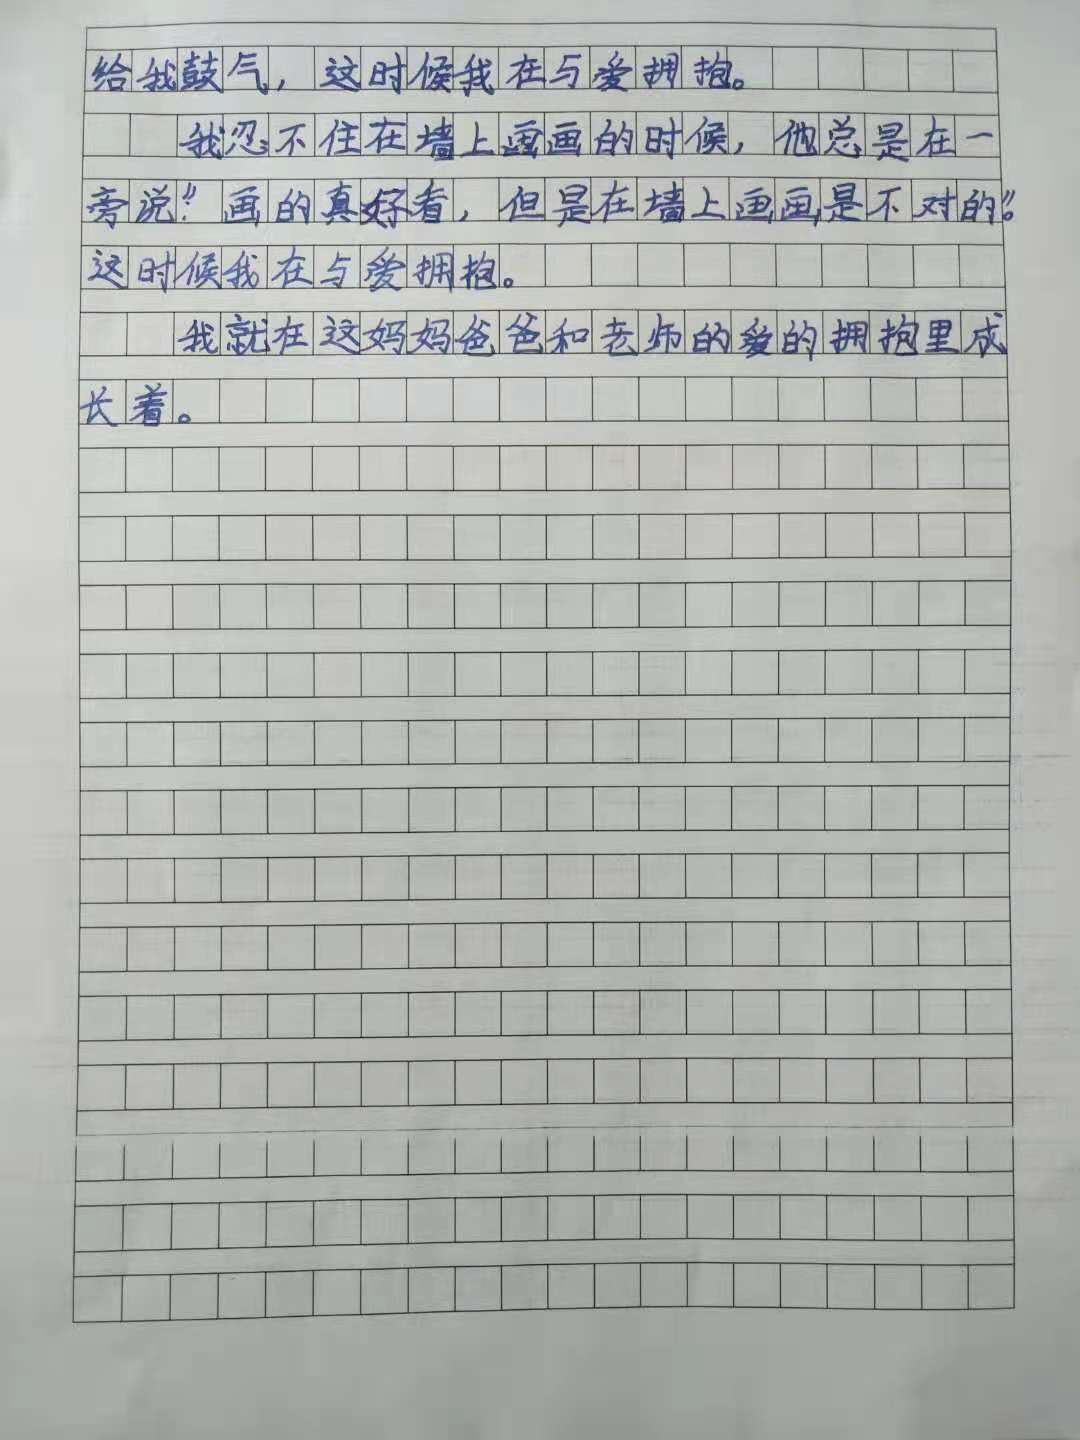 给我鼓气，这时候我在与爱拥抱。
我忍不住在墙上画画的时候，他总是在一
旁说：“画的真好看，但是在墙上画画是不对的。”
这时候我在与爱拥抱。
我就在这妈妈爸爸和老师的爱的拥抱里成
长着。